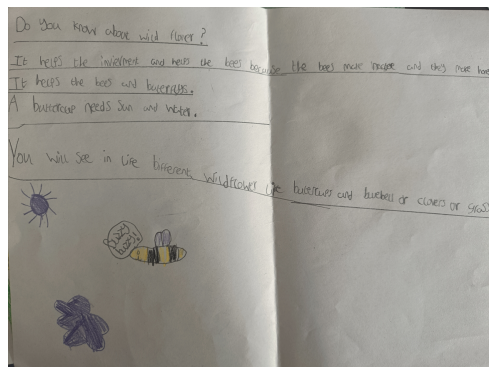 Do you know about wild flower?
It helps the invierment and helps the bees because the bees make and they make hone
It helps the bees and butterflys.
A buttercup needs sun and water.
You will see in life different wildflower like buttercups and bluebell or clovers or grass
Buzz
buzz!